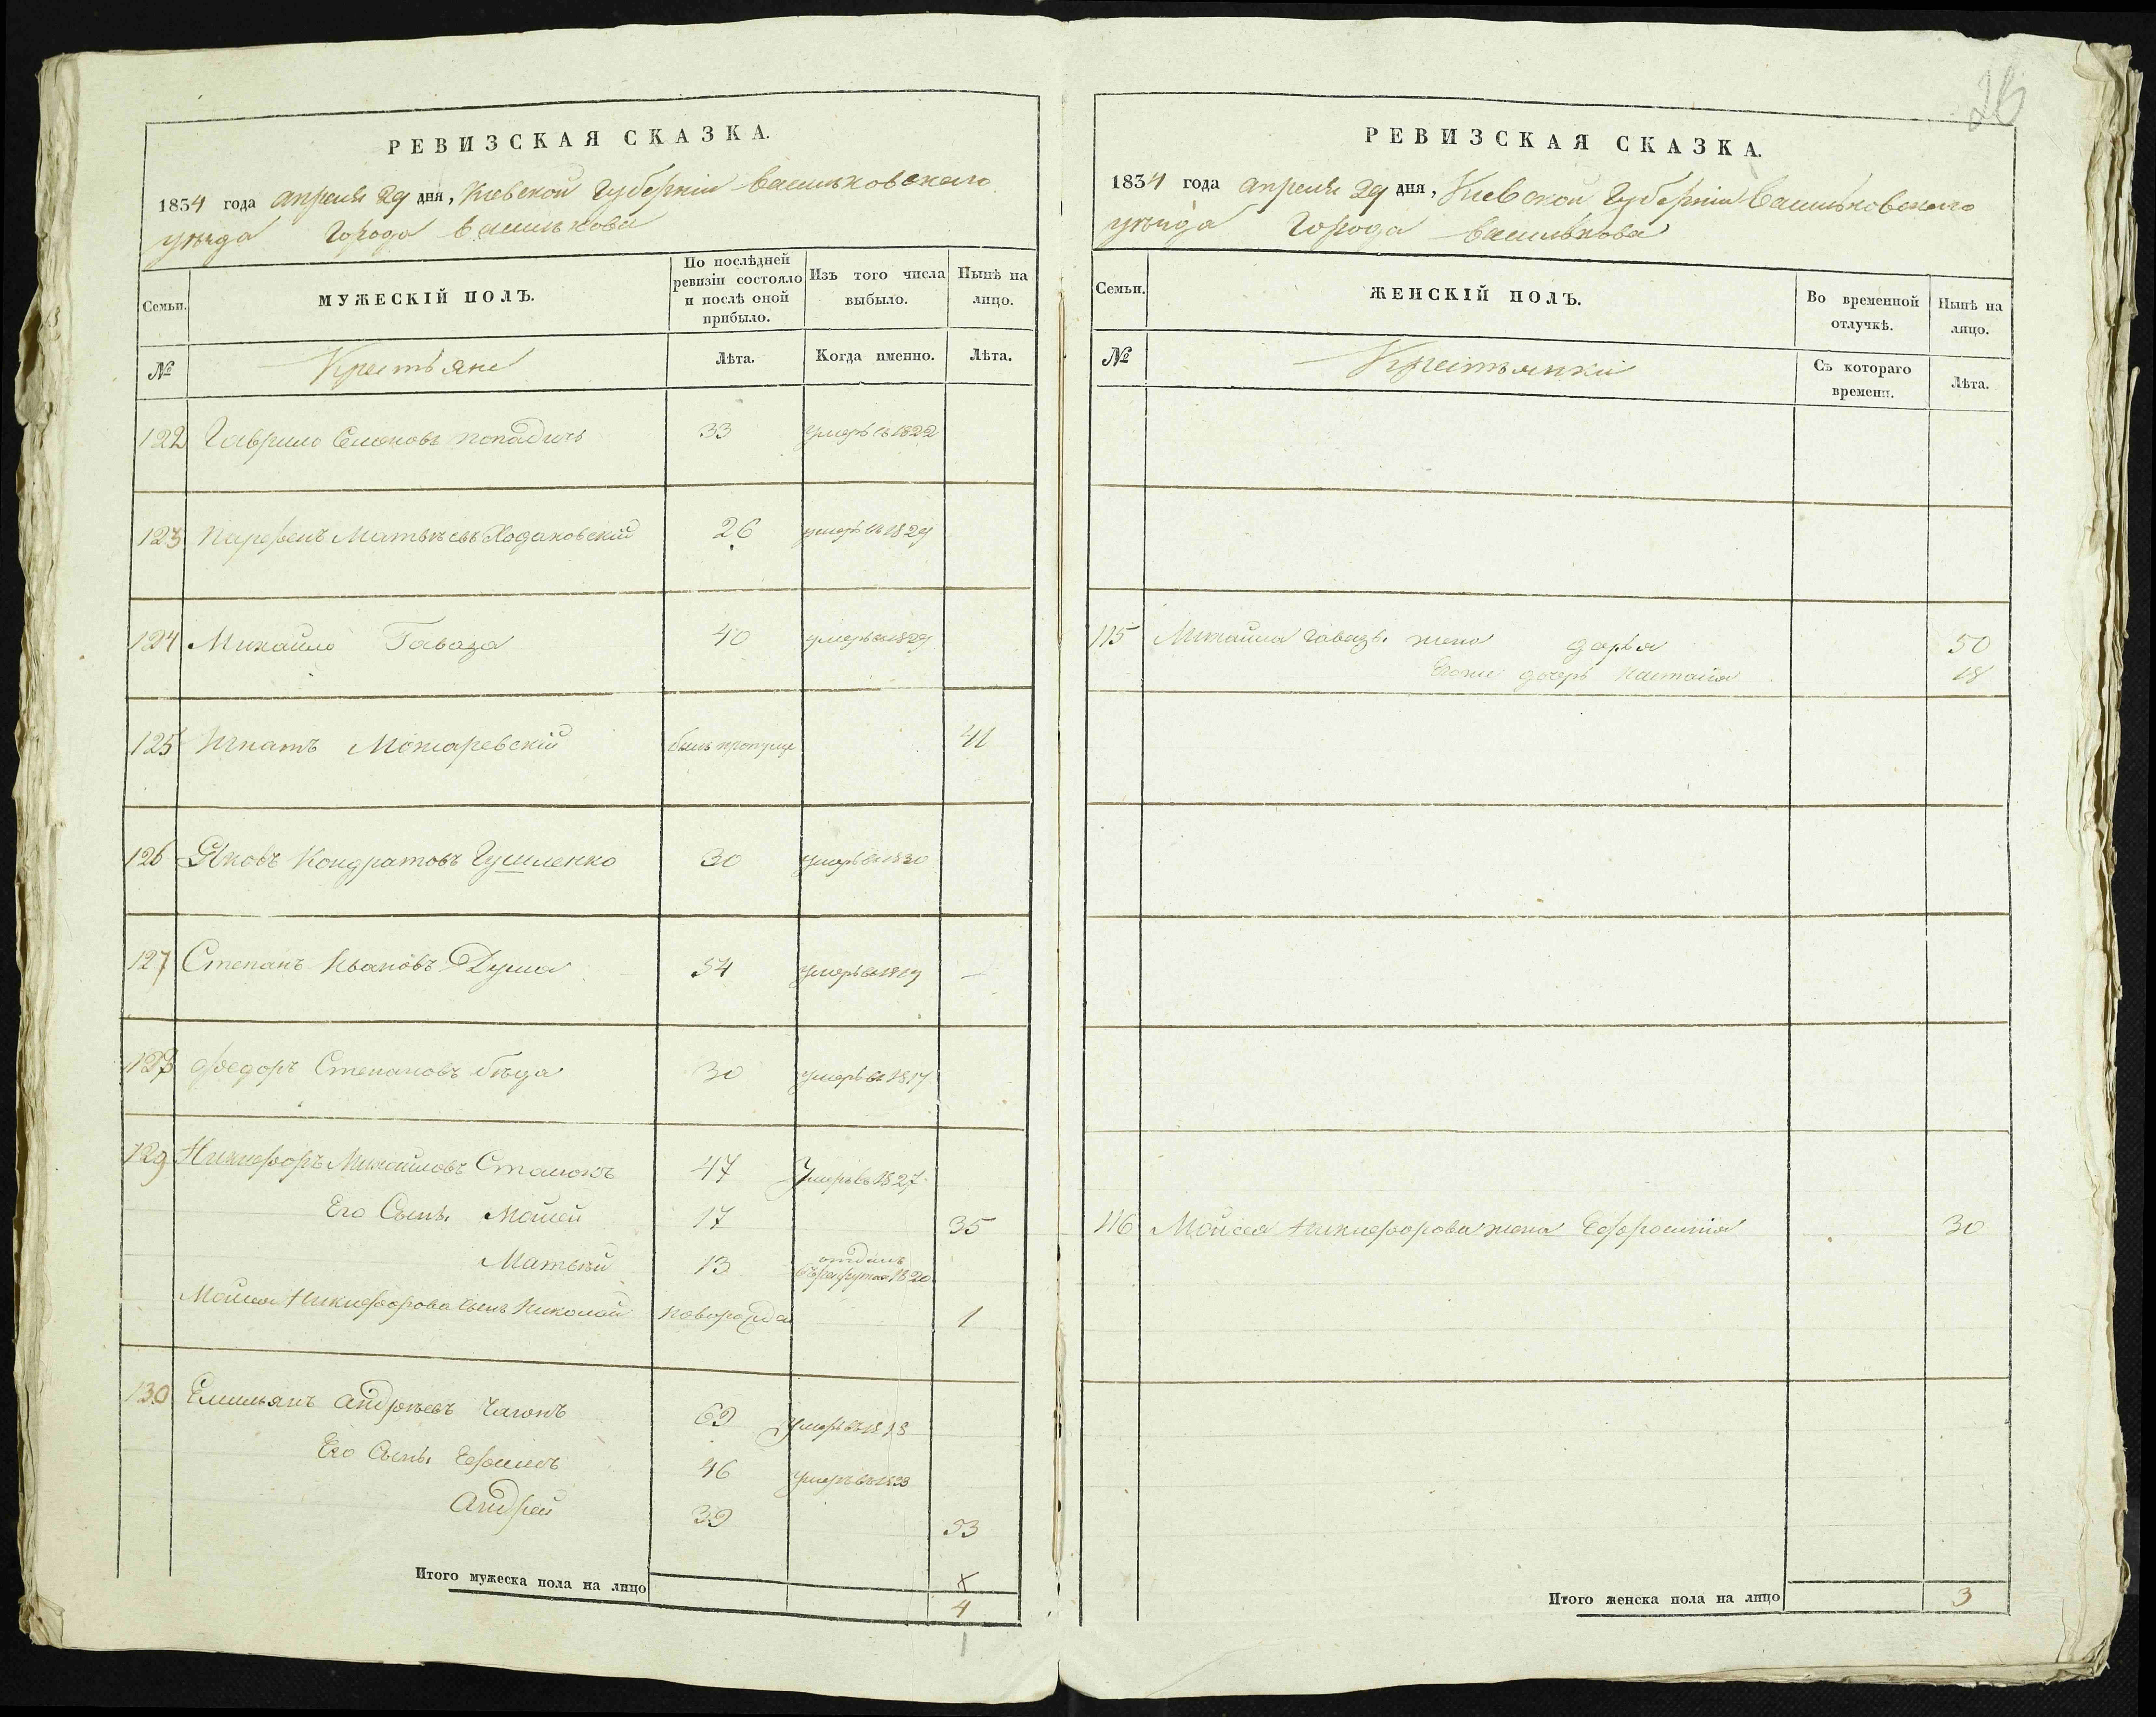 РЕВИЗСКАЯ СКАЗКА.
1834 года апреля 29 дня, Киевской Губернии Васильковского
уезда Города Василькова
Семьи.
МУЖЕСКІЙ ПОЛЪ.
По послѣдней ревизіи состояло и послѣ оной прибыло.
Изъ того числа выбыло.
Нынѣ на лицо.
№
Крестьяне
Лѣта.
Когда именно.
Лѣта.
122 Гаврило Семеновъ попадичъ 33 умеръ въ 1822
123 Парфенъ Матвѣевъ Ходаковскій 26 умеръ въ 1829
124 Михайло Гаваза 40 умеръ въ 1829
125 ИгнатъМожаревскій былъ пропуще 41
126 Яковъ Кондратовъ Гушленко 30 умеръ въ 1830
127 Степанъ Ивановъ Душа 54 умеръ въ 1819 —
128 Федоръ Степановъ бѣда 30 умеръ въ 1817
129 Никифоръ Михайловъ 47 Умеръ въ 1827
Его Сынъ Мойсей 17 35
Матвѣй 13 отданъ въ рекруты 1820
Мойсея Никифорова сынъ Николай новорожда 1
130 Емельянъ Андрѣевъ 69 умеръ въ 1818
Его Сынъ Ефимъ 46 умеръ въ 1833
Андрей 39 53
Итого мужеска пола на лицо
4
26
РЕВИЗСКАЯ СКАЗКА.
1834 года апреля 29 дня, Киевской Губернии Васильковского
уезда Города Василькова
Семьи.
ЖЕНСКІЙ ПОЛЪ.
Во временной отлучкѣ.
Нынѣ на лицо.
№
Крестьянки
Съ котораго времени.
Лѣта.
115 Михайла Гавазы жена дарья 50
Егоже дочерь Настасія 18
116 Мойсея Никифорова жена Ефросинія 30
Итого женска пола на лицо 3